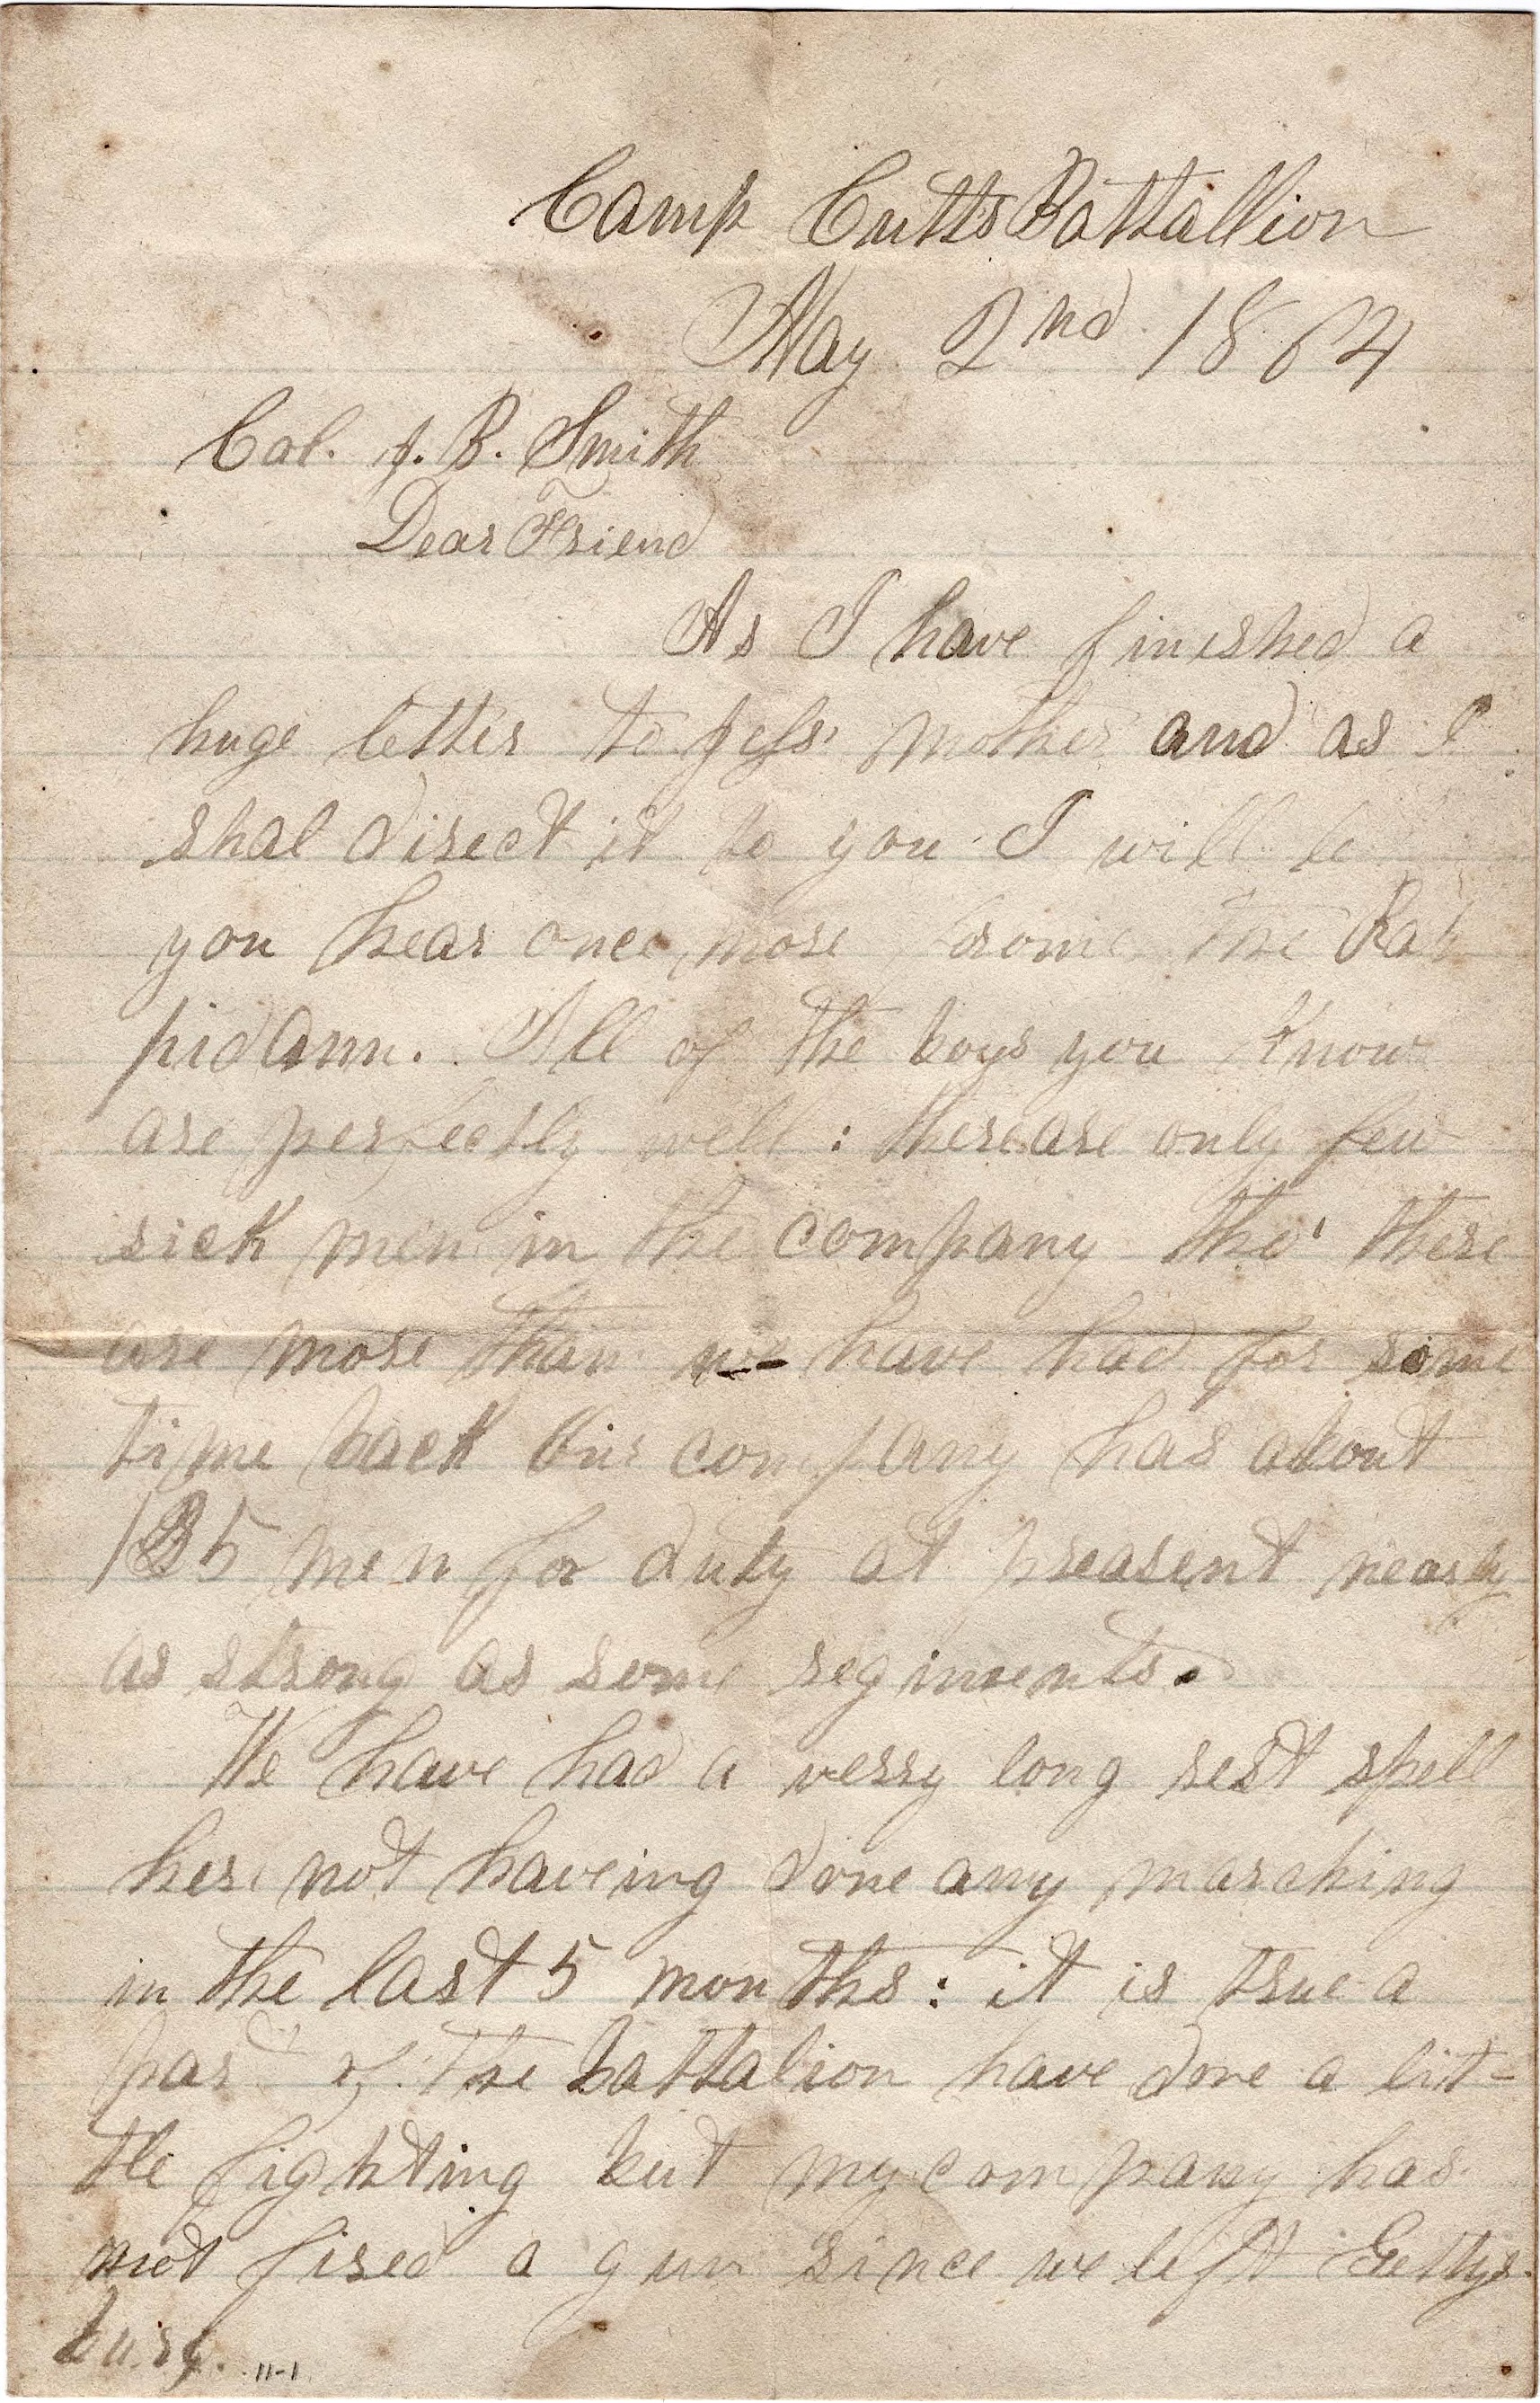 Camp Cutts Battallion
May 2nd 1864
Col. J. B. Smith
Dear Friend
As I have finished a
huge letter to Jess' mother and as I
shal direct it to you I will le
you hear once more frome the Rap
pidann. All of the boys you know
are perfectly well: there are only few
sick men in the company tho' there
are more than we have had for some
time back Our company has about
men for duty at preasent nearly
as strong as some regiments.
We have had a verry long rest spell
here not haveing done any marching
in the last 5 months: it is true a
part of the battalion have done a lit-
tle fighting but my company has
not fired a gun since we left Gettys-
burg. 11-1